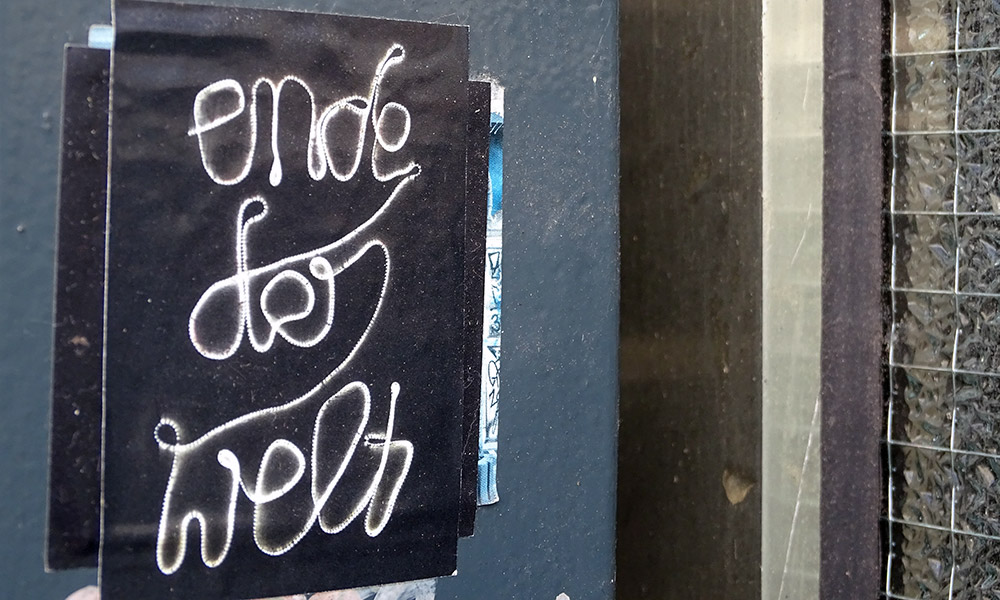 ende
der
welt